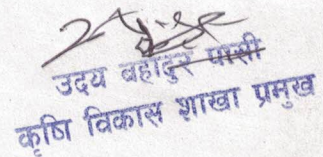 उदय बहादुर पासी
कृषि विकास शाखा प्रमुख